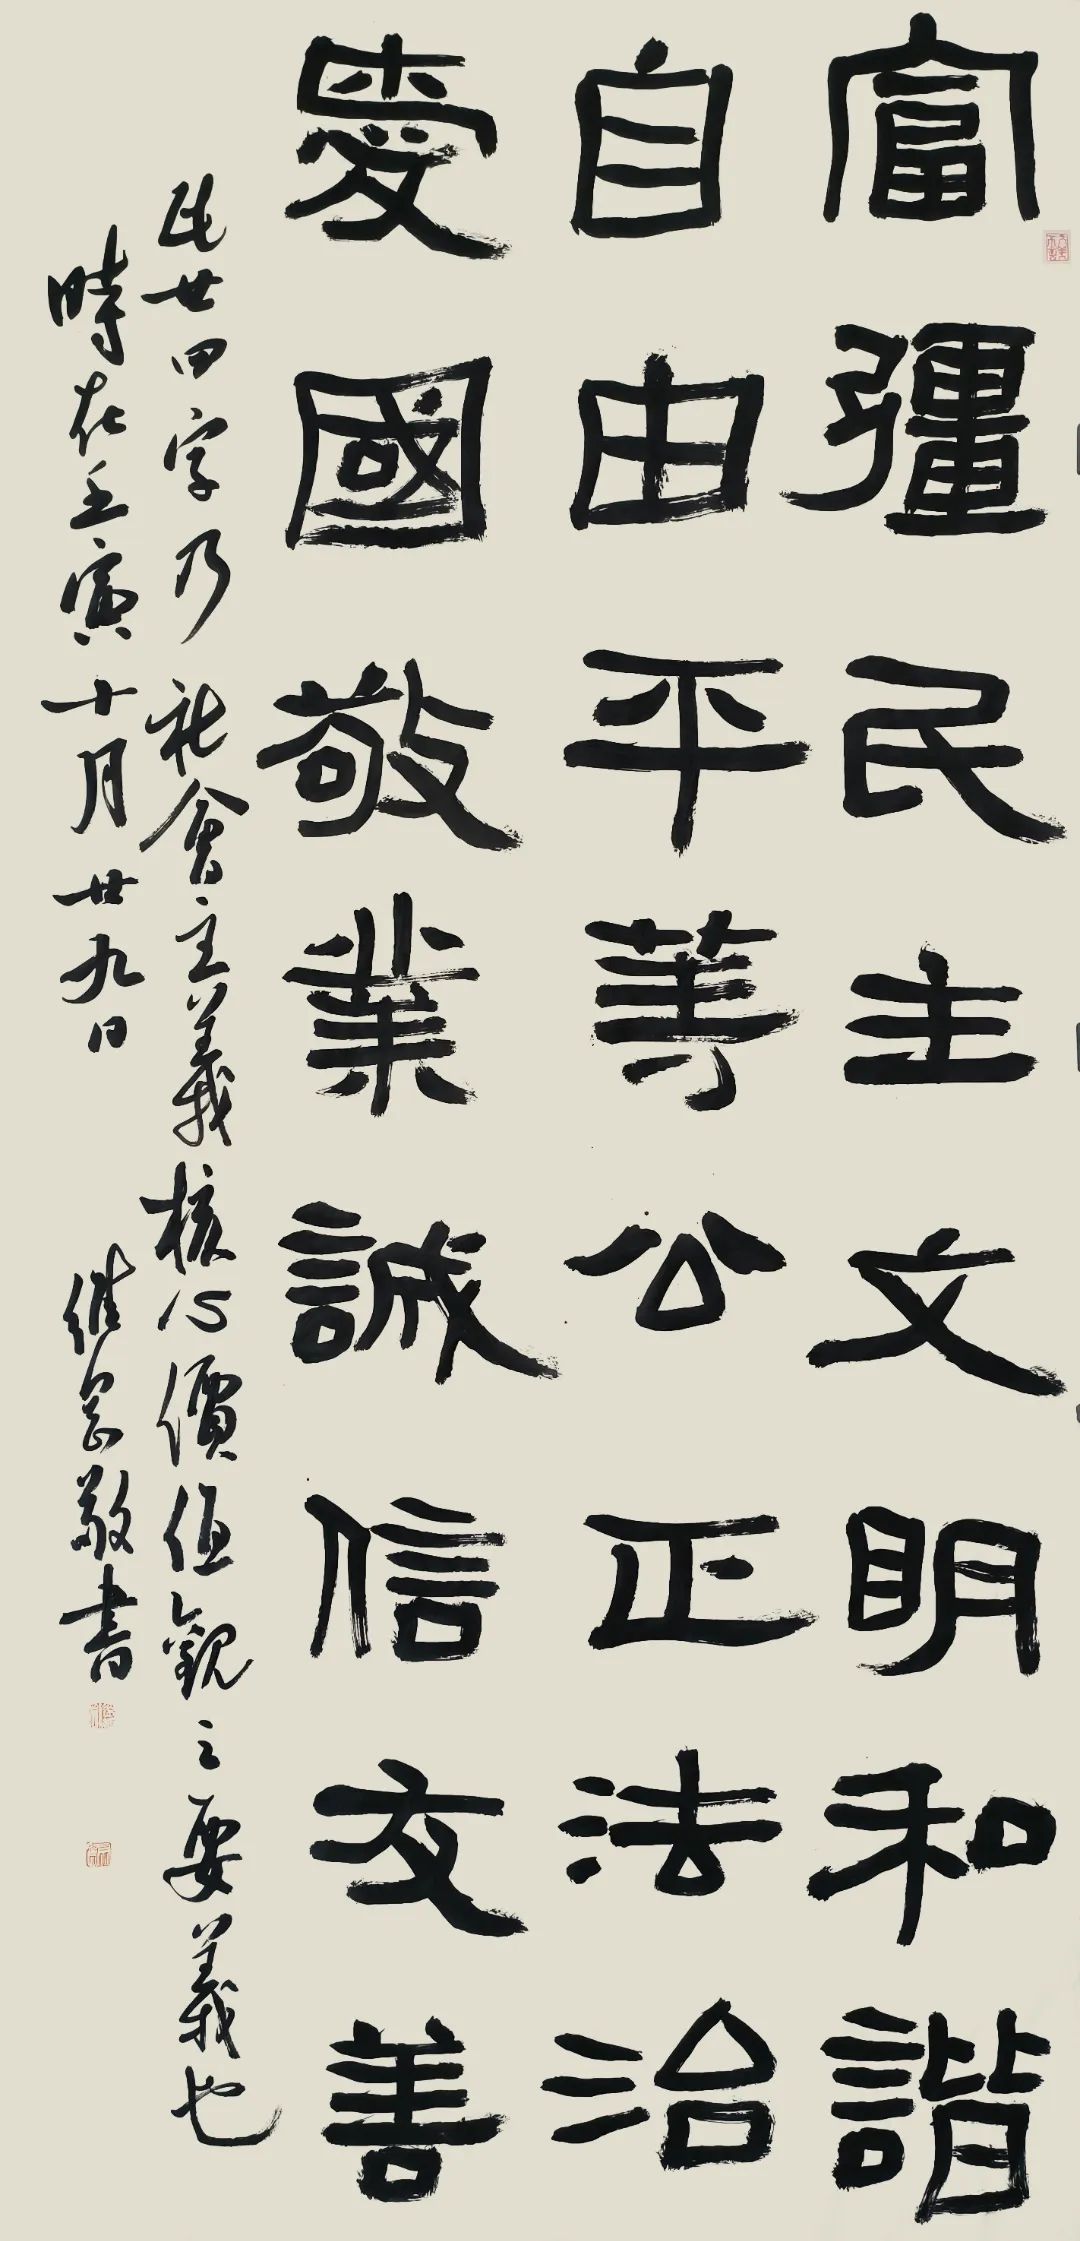 富彊民主文明和諧
自由平等公正法治
愛國敬業誠信友善
此廿四字乃社會主義核心價值觀之要義也
時在壬寅十月廿九日
敬書